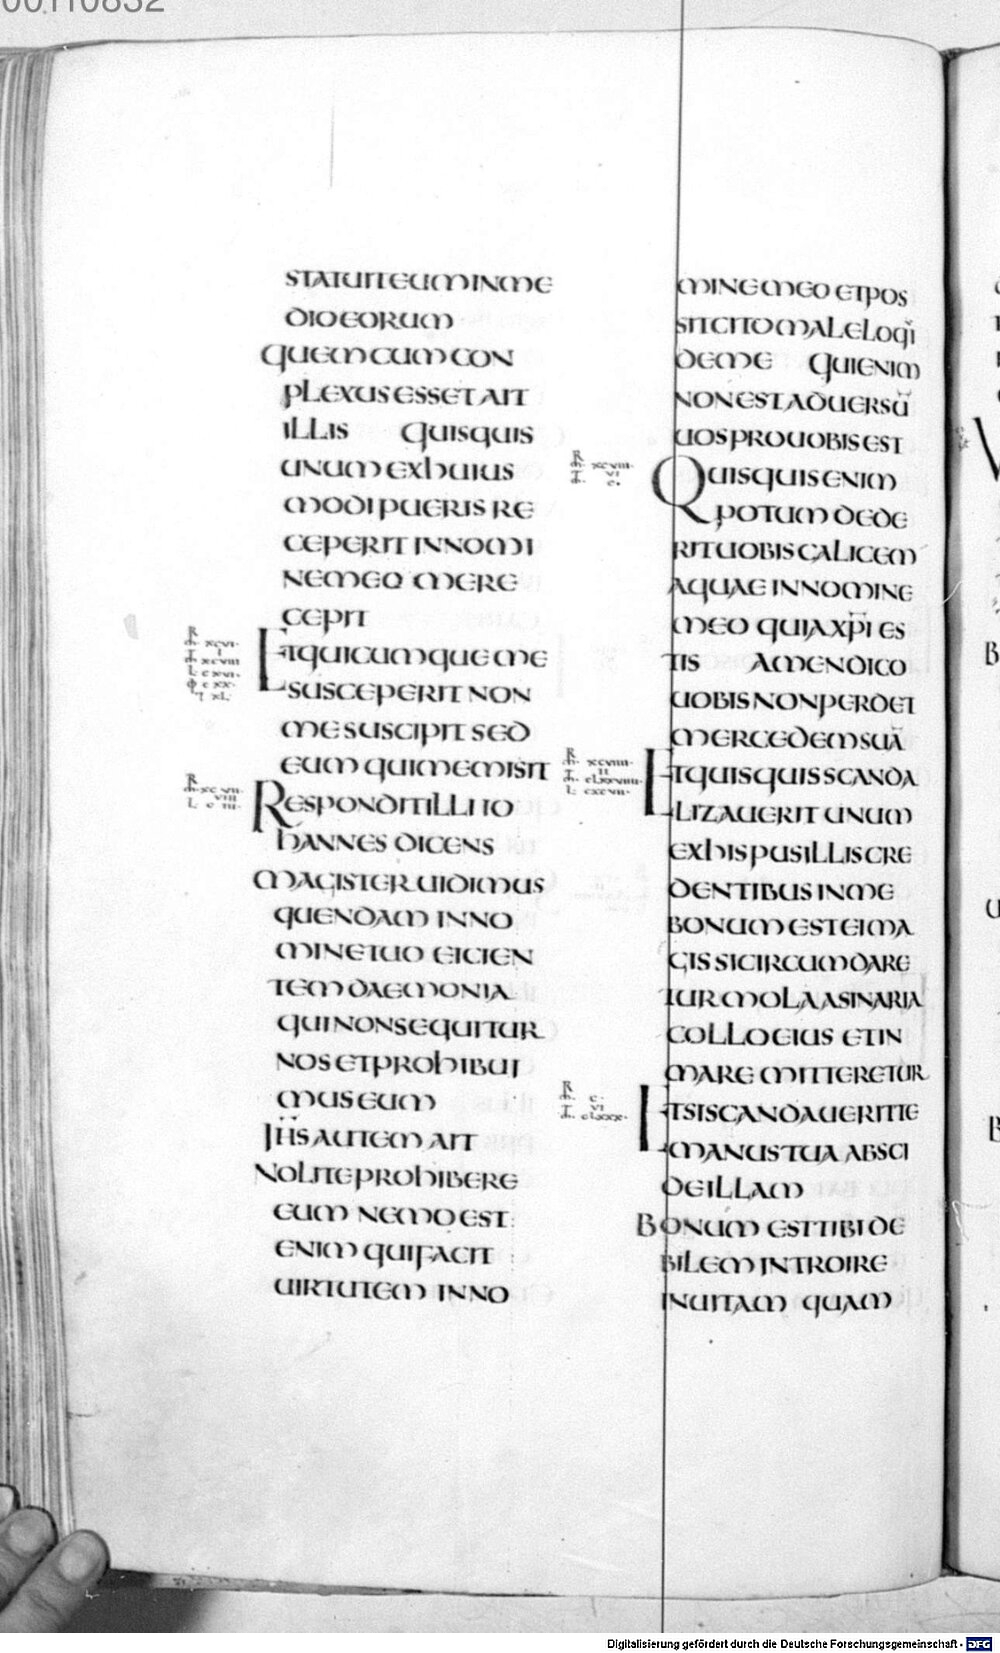 00110832
STATUITEUMINME
DIOEORUM
QUEMCUMCON
PLEXUSESSETAIT
ILLIS QUISQUIS
UNUMEXHUIUS
MODIPUERISRE
CEPERITINNOMI
NEMEO MERE
CEPIT
ETQUICUMQUEME
SUSCEPERITNON
MESUSCIPITSED
EUMQUIMEMISIT
RESPONDITILLIIO
HANNES DICENS
MAGISTERUIDIMUS
QUENDAM INNO
MINETUO EICIEN
TEMDAEMONIA
QUINONSEQUITUR
NOSETPROHIBUI
MUSEUM
IHSAUTEM AIT
NOLITEPROHIBERE
EUM NEMOEST
ENIMQUIFACIT
UIRTUTEM INNO
MINEMEOETPOS
SITCITOMALELOQI
DEME QUIENIM
NONESTADUERSŪ
UOSPROUOBISEST
QUISQUISENIM
POTUMDEDE
RITUOBISCALICEM
AQUAEINNOMINE
MEO QUIAXP̄IES
TIS AMENDICO
UOBISNONPERDET
MERCEDEMSUĀ
ETQUISQUISSCANDA
LIZAUERITUNUM
EXHISPUSILLISCRE
DENTIBUSINME
BONUMESTEIMA
GISSICIRCUMDARE
TURMOLAASINARIA
COLLOEIUS ETIN
MAREMITTERETUR
ETSISCANDAUERITTE
MANUSTUAABSCI
DEILLAM
BONUM ESTTIBIDE
BILEMINTROIRE
INUITAM QUAM
Digitalisierung gefördert durch die Deutsche Forschungsgemeinschaft - DFG